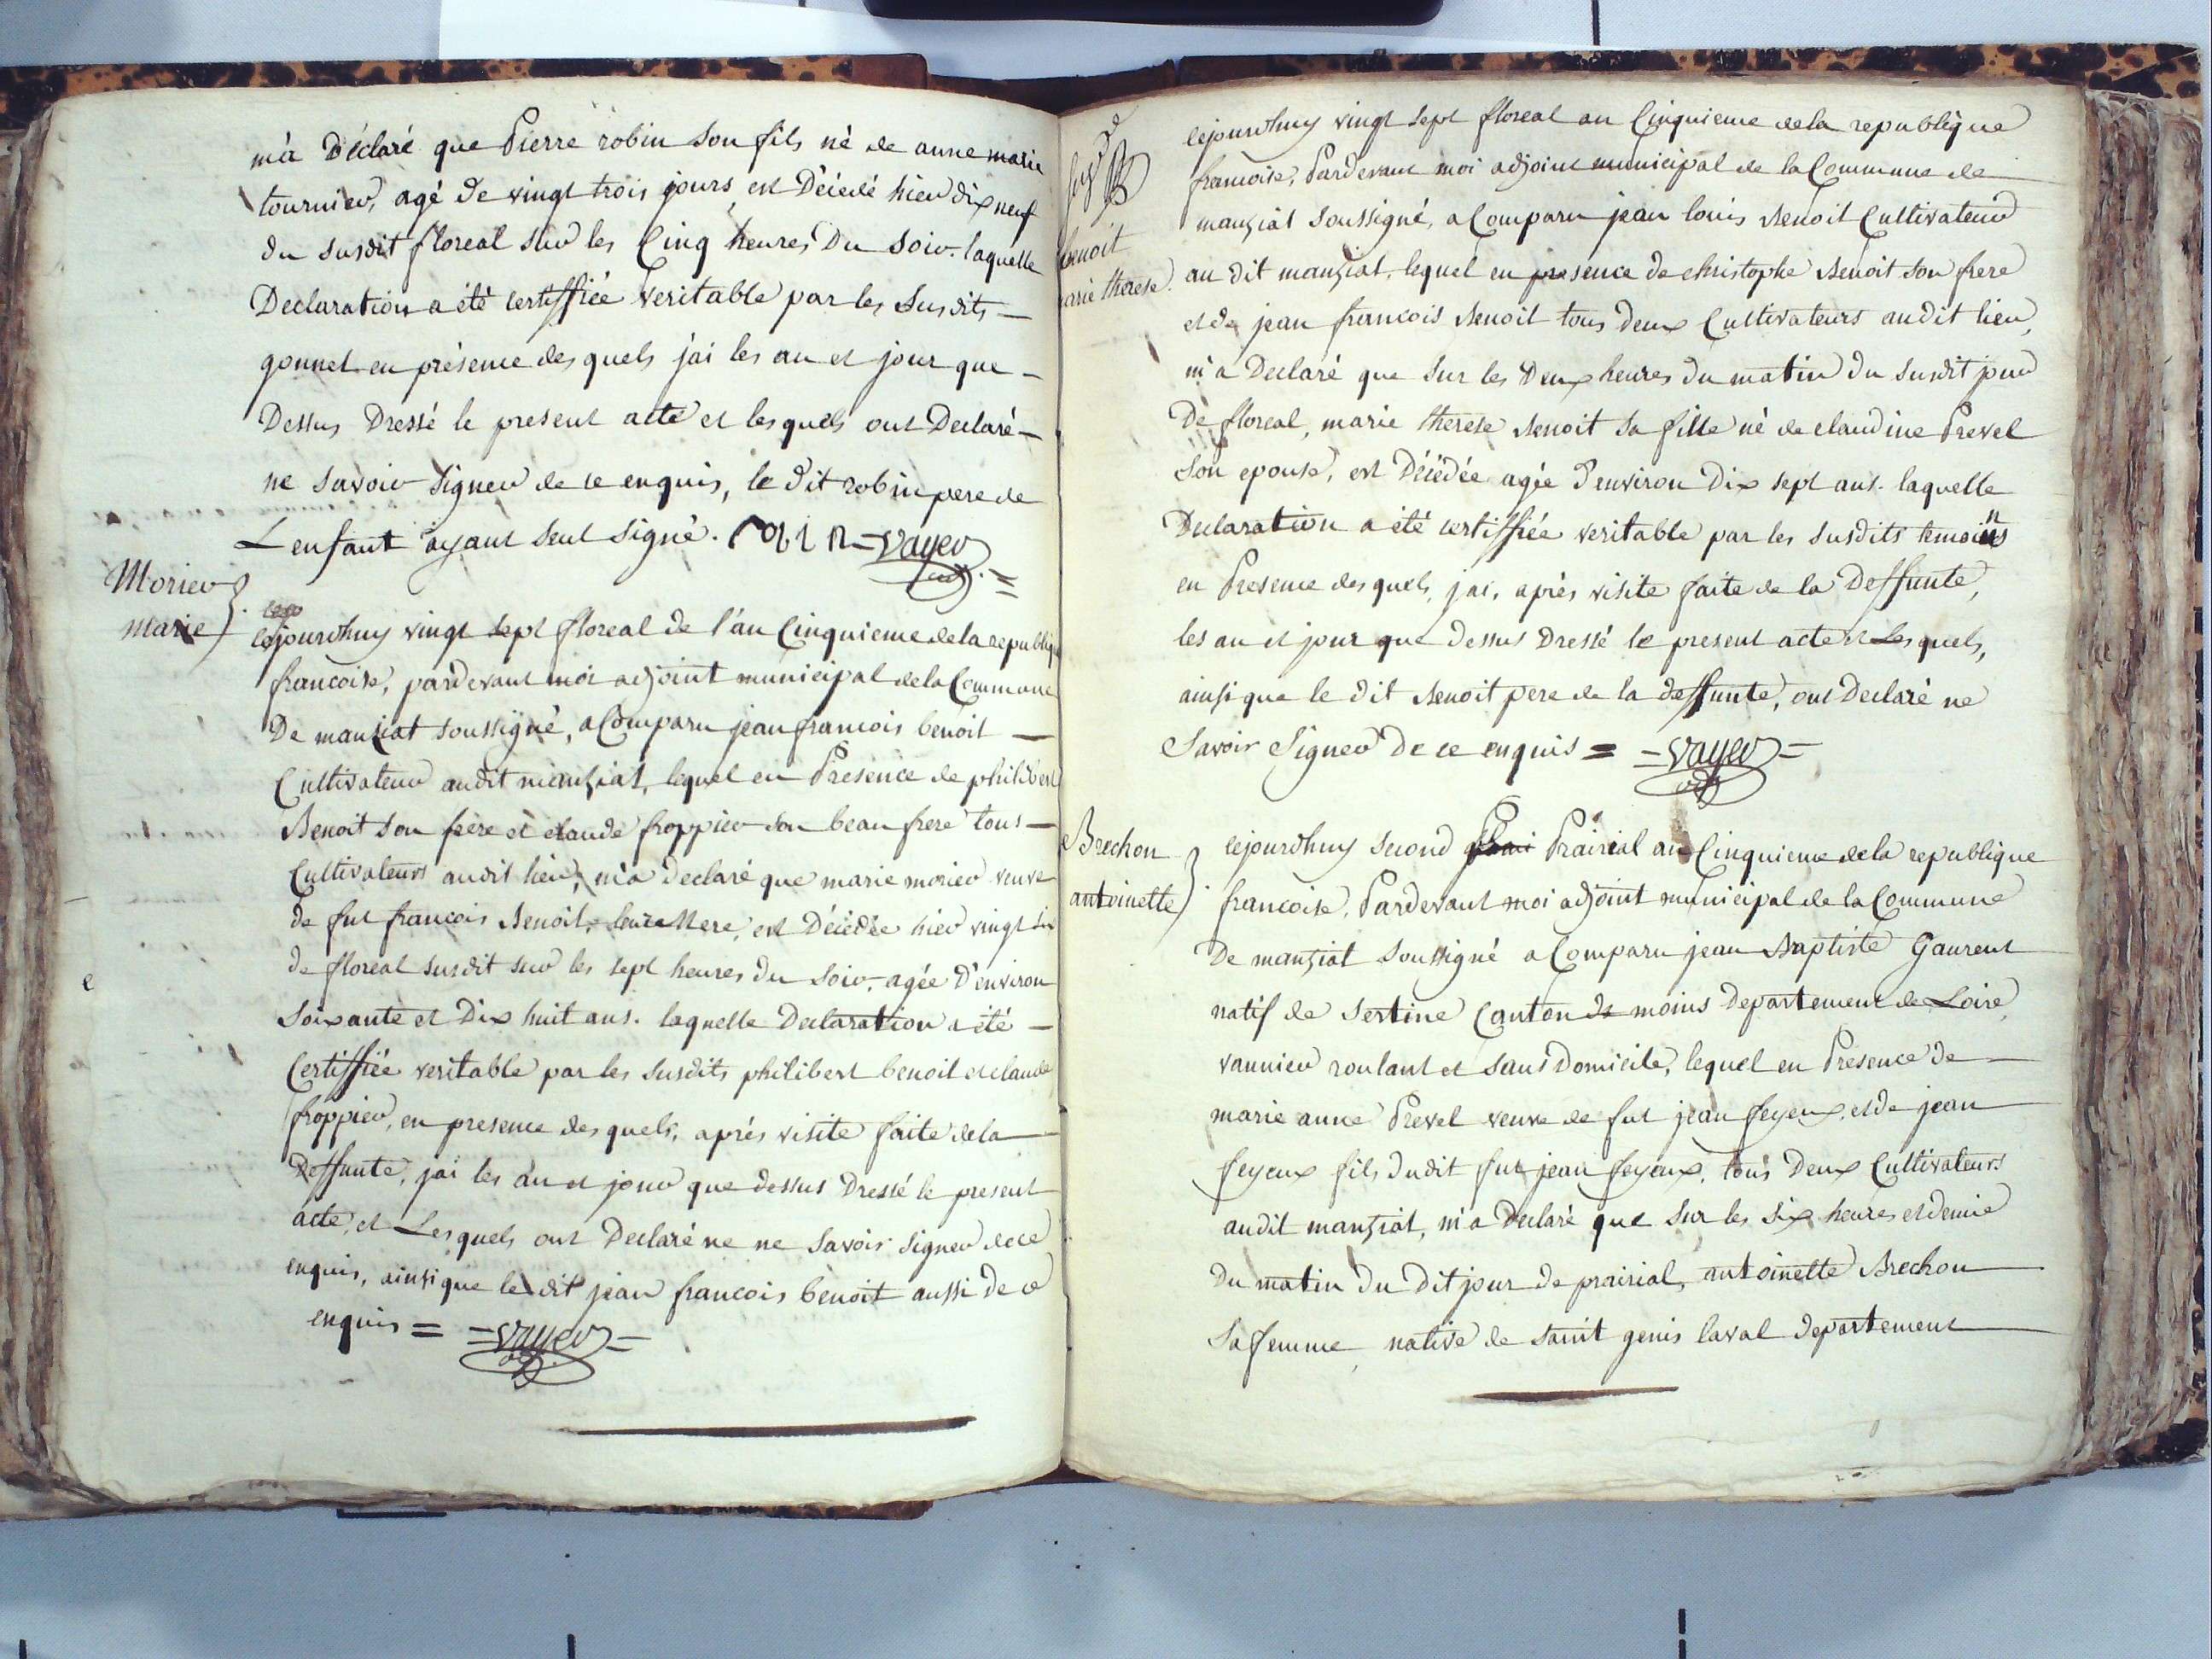 m'a Déclaré que Pierre robin son fils né de anne marie
tournier, agé de vingt trois jours, est Décedé hier dix neuf
du susdit floreal sur les Cinq heures Du soir. laquelle
Declaration a été certiffiée veritable par les Susdits
gonnet en présence des quels j'ai les an et jour que
Dessus Dressé le present acte et lesquels ont Declaré
ne savoir signer de ce enquis, le dit robin pere de
L'enfant ayant seul signé. robin = vayer
Morier
marie
cejourdhuy vingt sept floreal de l'an Cinquieme de la republique
francoise, pardevant moi adjoint municipal de la Commune
De manziat soussigné, a Comparu jean francois benoit
Cultivateur audit manziat, lequel en Presence de philibert
Benoit son frere et claude froppier son beau frere tous
Cultivateurs audit lieu, m'a declaré que marie morier veuve
de fut francois Benoit, leur Mere, est Décédée hier vingt six
de floreal susdit sur les sept heures du soir, agée D'environ
soixante et Dix huit ans. laquelle Declaration a été
Certiffiée veritable par les susdits philibert benoit et claude
froppier, en presence des quels, aprés visite faite de la
Deffunte, j'ai les an et jour que dessus Dressé le present
acte, et Lesquels ont Declaré ne ne Savoir signer de ce
enquis, ainsi que le dit jean francois benoit aussi de ce
enquis = = vayer =
benoit
marie therese
cejourdhuy vingt sept floreal an Cinquieme de la republique
francoise, Pardevant moi adjoint municipal de la Commune de
manziat soussigné, a Comparu jean louis Benoit Cultivateur
au dit manziat, lequel en presence de christophe Benoit son frere
et de jean francois Benoit tous deux Cultivateurs audit lieu,
m'a Declaré que sur les Deux heures du matin du susdit jour
De floreal, marie therese Benoit sa fille né de claudine Prevel
son epouse, est Décédée agée d'environ Dix sept ans. laquelle
Declaration a été certiffiée veritable par les susdits temoins
en Presence des quels, j'ai, aprés visite faite de la Deffunte,
les an et jour que dessus Dressé le present acte et Lesquels,
ainsi que le dit Benoit pere de la deffunte, ont Declaré ne
Savoir Signer De ce enquis = = vayer =
Brechon
antoinette
cejourdhuy second Prairial an Cinquieme de la republique
francoise, Pardevant moi adjoint municipal de la Commune
De manziat soussigné a Comparu jean Baptiste Gaurent
natif de sertine Canton de moins departement de Loire,
vannier roulant et sans Domicile, lequel en Presence de
marie anne Prevel veuve de fut jean feyeux, et de jean
feyeux fils dudit fut jean feyeux, tous Deux Cultivateurs
audit manziat, m'a Declaré que sur les six heures et demie
Du matin du dit jour de prairial, antoinette Brechon
Sa femme, native de saint genis laval departement